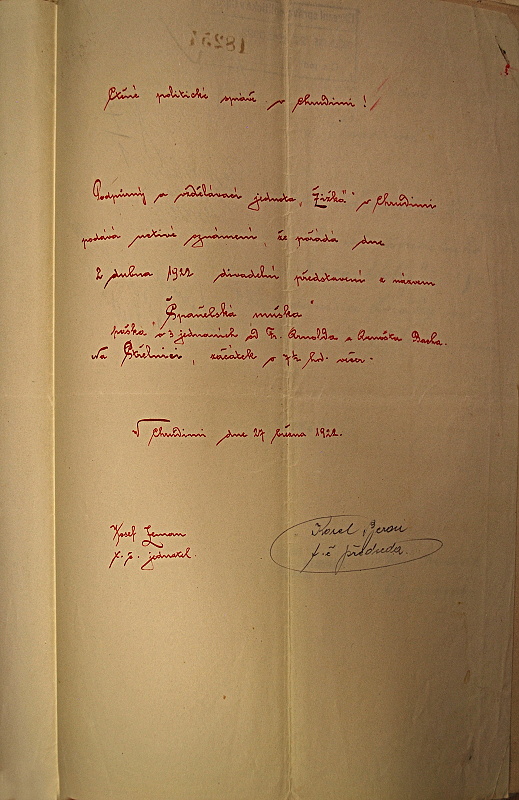 Ctěné politické správě v Chrudimi!
Podpůrný a vzdělávací jednota „Žižka" v Chrudimi
podává uctivé oznámení, že pořádá dne
2 dubna 1922 divadelní představení s názvem
„Španělská muška"
fraška v 3 jednáních od Fr. Arnolda a Arnošta Bacha.
Na Střelnici, začátek o 7½ hod. večer.
V Chrudimi dne 27 března 1922.
Josef Zeman
t. č. jednatel.
Karel Beran
t. č předseda.